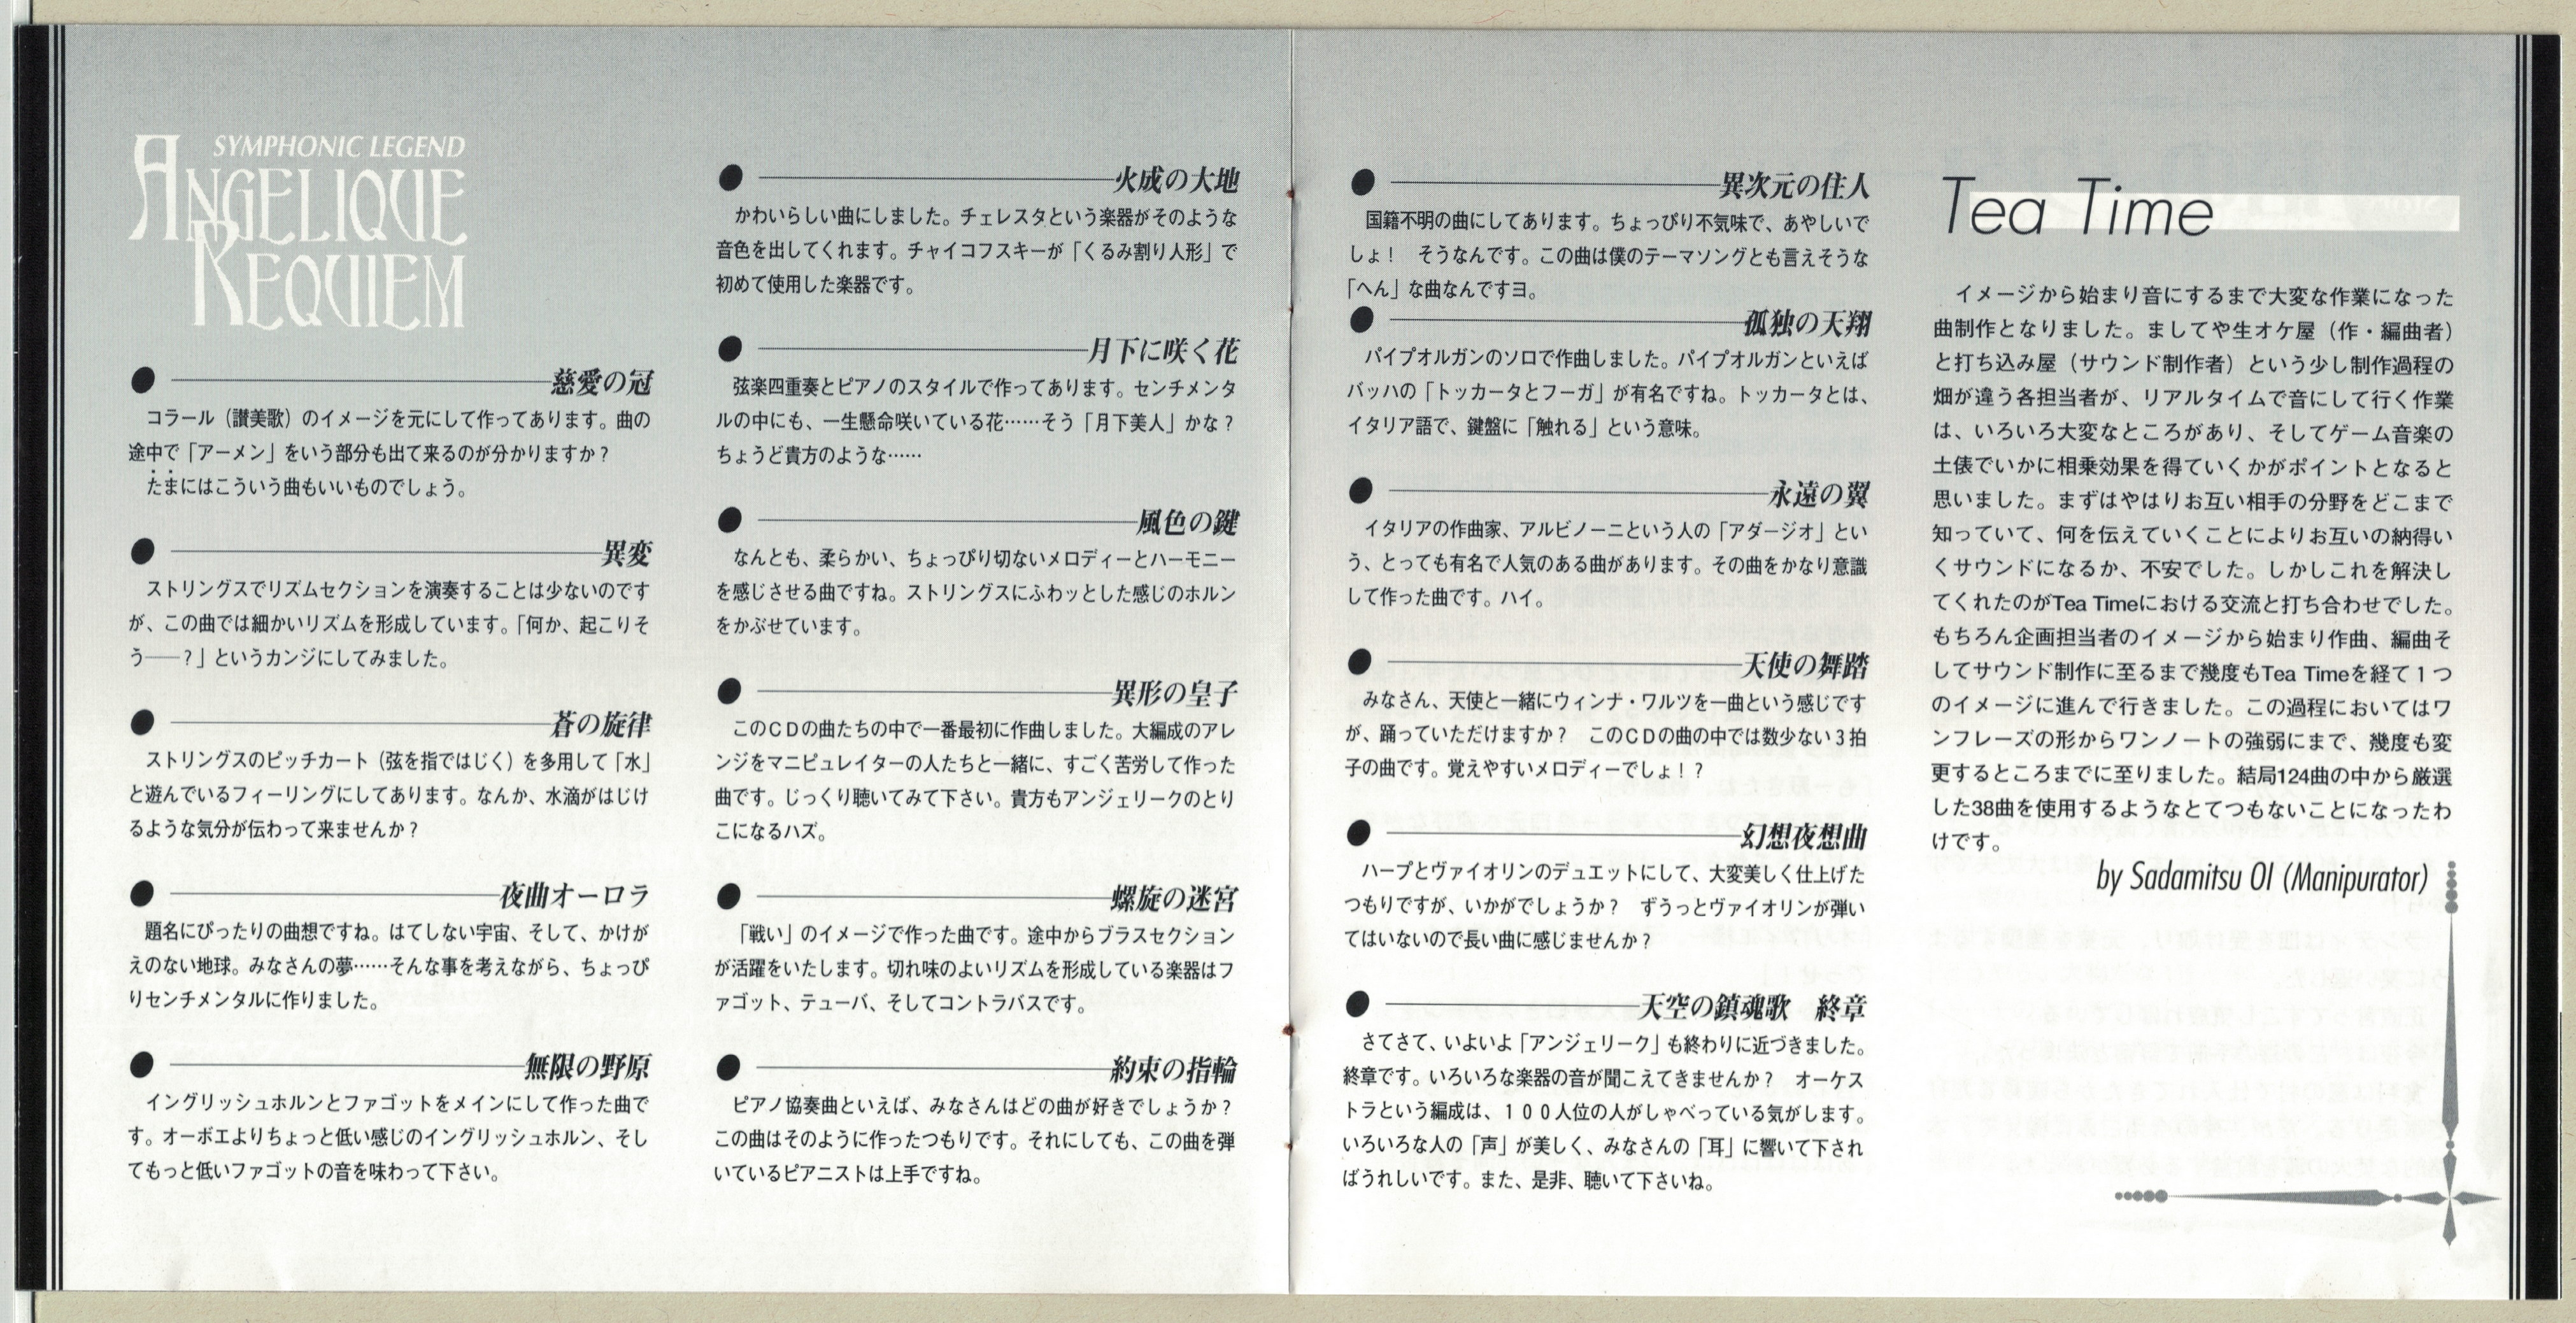 SYMPHONIC LEGEND
ANGELIQUE
REQUIEM
慈愛の冠
コラール（讃美歌）のイメージを元にして作ってあります。曲の
途中で「アーメン」をいう部分も出て来るのが分かりますか？
たまにはこういう曲もいいものでしょう。
異変
ストリングスでリズムセクションを演奏することは少ないのです
が、この曲では細かいリズムを形成しています。「何か、起こりそ
う──？」というカンジにしてみました。
蒼の旋律
ストリングスのピッチカート（弦を指ではじく）を多用して「水」
と遊んでいるフィーリングにしてあります。なんか、水滴がはじけ
るような気分が伝わって来ませんか？
夜曲オーロラ
題名にぴったりの曲想ですね。はてしない宇宙、そして、かけが
えのない地球。みなさんの夢……そんな事を考えながら、ちょっぴ
りセンチメンタルに作りました。
無限の野原
イングリッシュホルンとファゴットをメインにして作った曲で
す。オーボエよりちょっと低い感じのイングリッシュホルン、そし
てもっと低いファゴットの音を味わって下さい。
火成の大地
かわいらしい曲にしました。チェレスタという楽器がそのような
音色を出してくれます。チャイコフスキーが「くるみ割り人形」で
初めて使用した楽器です。
月下に咲く花
弦楽四重奏とピアノのスタイルで作ってあります。センチメンタ
ルの中にも、一生懸命咲いている花……そう「月下美人」かな？
ちょうど貴方のような……
風色の鍵
なんとも、柔らかい、ちょっぴり切ないメロディーとハーモニー
を感じさせる曲ですね。ストリングスにふわッとした感じのホルン
をかぶせています。
異形の皇子
このＣＤの曲たちの中で一番最初に作曲しました。大編成のアレ
ンジをマニピュレイターの人たちと一緒に、すごく苦労して作った
曲です。じっくり聴いてみて下さい。貴方もアンジェリークのとり
こになるハズ。
螺旋の迷宮
「戦い」のイメージで作った曲です。途中からブラスセクション
が活躍をいたします。切れ味のよいリズムを形成している楽器はフ
ァゴット、テューバ、そしてコントラバスです。
約束の指輪
ピアノ協奏曲といえば、みなさんはどの曲が好きでしょうか？
この曲はそのように作ったつもりです。それにしても、この曲を弾
いているピアニストは上手ですね。
異次元の住人
国籍不明の曲にしてあります。ちょっぴり不気味で、あやしいで
しょ！　そうなんです。この曲は僕のテーマソングとも言えそうな
「へん」な曲なんですヨ。
孤独の天翔
パイプオルガンのソロで作曲しました。パイプオルガンといえば
バッハの「トッカータとフーガ」が有名ですね。トッカータとは、
イタリア語で、鍵盤に「触れる」という意味。
永遠の翼
イタリアの作曲家、アルビノーニという人の「アダージオ」とい
う、とっても有名で人気のある曲があります。その曲をかなり意識
して作った曲です。ハイ。
天使の舞踏
みなさん、天使と一緒にウィンナ・ワルツを一曲という感じです
が、踊っていただけますか？　このＣＤの曲の中では数少ない３拍
子の曲です。覚えやすいメロディーでしょ！？
幻想夜想曲
ハープとヴァイオリンのデュエットにして、大変美しく仕上げた
つもりですが、いかがでしょうか？　ずうっとヴァイオリンが弾い
てはいないので長い曲に感じませんか？
天空の鎮魂歌　終章
さてさて、いよいよ「アンジェリーク」も終わりに近づきました。
終章です。いろいろな楽器の音が聞こえてきませんか？　オーケス
トラという編成は、１００人位の人がしゃべっている気がします。
いろいろな人の「声」が美しく、みなさんの「耳」に響いて下され
ばうれしいです。また、是非、聴いて下さいね。
Tea Time
イメージから始まり音にするまで大変な作業になった
曲制作となりました。ましてや生オケ屋（作・編曲者）
と打ち込み屋（サウンド制作者）という少し制作過程の
畑が違う各担当者が、リアルタイムで音にして行く作業
は、いろいろ大変なところがあり、そしてゲーム音楽の
土俵でいかに相乗効果を得ていくかがポイントとなると
思いました。まずはやはりお互い相手の分野をどこまで
知っていて、何を伝えていくことによりお互いの納得い
くサウンドになるか、不安でした。しかしこれを解決し
てくれたのがTea Timeにおける交流と打ち合わせでした。
もちろん企画担当者のイメージから始まり作曲、編曲そ
してサウンド制作に至るまで幾度もTea Timeを経て１つ
のイメージに進んで行きました。この過程においてはワ
ンフレーズの形からワンノートの強弱にまで、幾度も変
更するところまでに至りました。結局124曲の中から厳選
した38曲を使用するようなとてつもないことになったわ
けです。
by Sadamitsu OI (Manipurator)